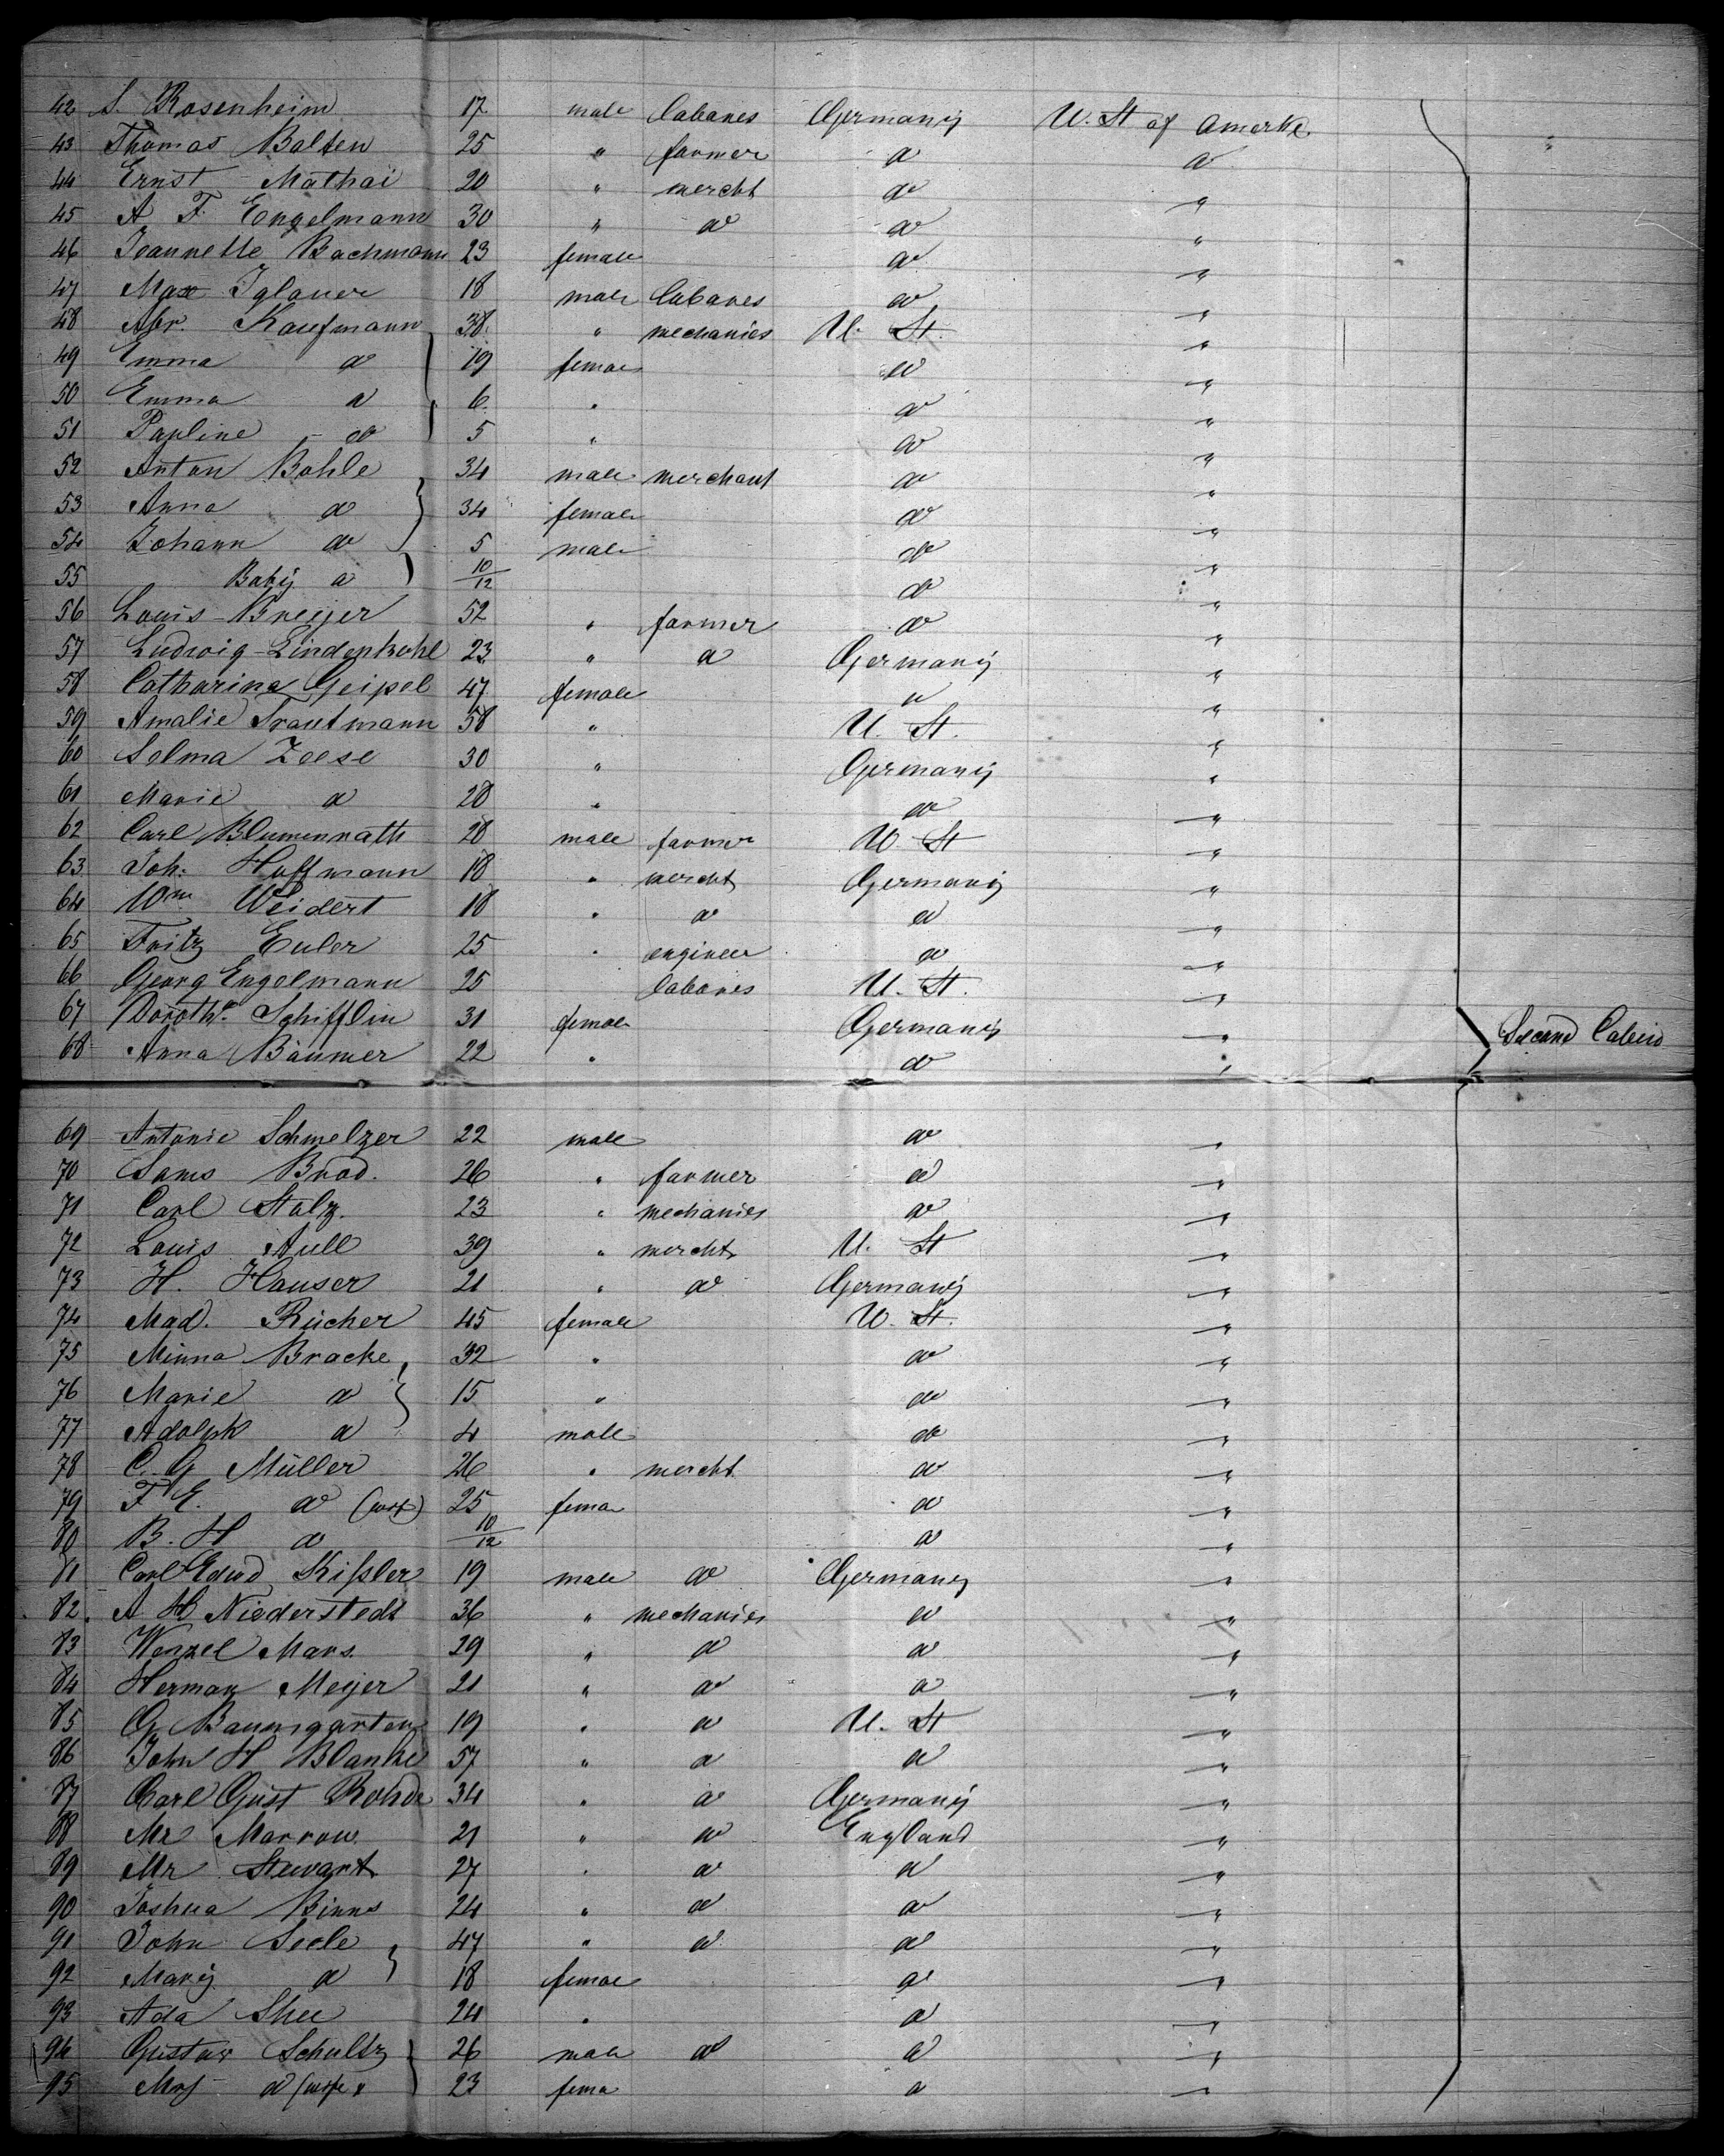 42 S. Rosenheim 17 male labares Germany U. St of Amerke.
43 Thomas Balten 25 " farmer do do
44 Ernst Mathai 20 " mercht do "
45 A F. Engelmann 30 " do do "
46 Jeannette Bachmann 23 female do "
47 Max Iglauer 18 male labares do "
48 Abr. Kaufmann 38. " mechanics U. St. "
49 Emma do 19 female do "
50 Emma do 6. " do "
51 Pauline do 5 " do "
52 Anton Bohle 34 male merchant do "
53 Anna do 34 female do "
54 Johann do 5 male do "
55 Baby do 10/12 do "
56 Louis Kneijer 52 " farmer do "
57 Ludwig Lindenkohl 23 " do Germany "
58 Catharina Geipel 47 female do "
59 Amalie Trautmann 58 " U. St. "
60 Selma Zeese 30 " Germany "
61 Marie do 28 " do "
62 Carl Blumenrath 28 male farmer U. St "
63 Joh. Hoffmann 18 " mercht Germany "
64 Wm Weidert 18 " do do "
65 Fritz Euler 25 " engineer do "
66 Georg Engelmann 25 labares U. St. "
67 Doroth. Schifflin 31 female Germany " Second Cabin
68 Anna Bäumer 22 " do "
69 Antonie Schmelzer 22 male do "
70 Sams Brod. 26 " farmer do "
71 Carl Stalz. 23 " mechanics do "
72 Louis Aull 39 " mercht U. St "
73 H. Hauser 21 " do Germany "
74 Mad. Rücher 45 female U. St. "
75 Minna Bracke 32 " do "
76 Marie do 15 " do "
77 Adolph do 4 male do "
78 C. G Müller 26 " mercht do "
79 F E. do (wife) 25 fema do "
80 B. H do 10/12 do "
81 Carl Edud Kißler 19 male do Germany "
82 A H Niederstedt 36 " mechanics do "
83 Wenzel Mars. 29 " do do "
84 Herman Meijer 21 " do do "
85 G. Baumgarten 19 " do U. St "
86 John H Blanke 57 " do do "
87 Carl Gust Rohde 34 " do Germany "
88 Mr Marrow 21 " do England "
89 Mr Stewart 27 " do do "
90 Joshua Binns 24 " do do "
91 John Seele 47 " do do "
92 Mary do 18 female do "
93 Ada Shee 24 " do "
94 Gustav Schultz 26 male do do "
95 Mrs do (wife) 23 fema do "